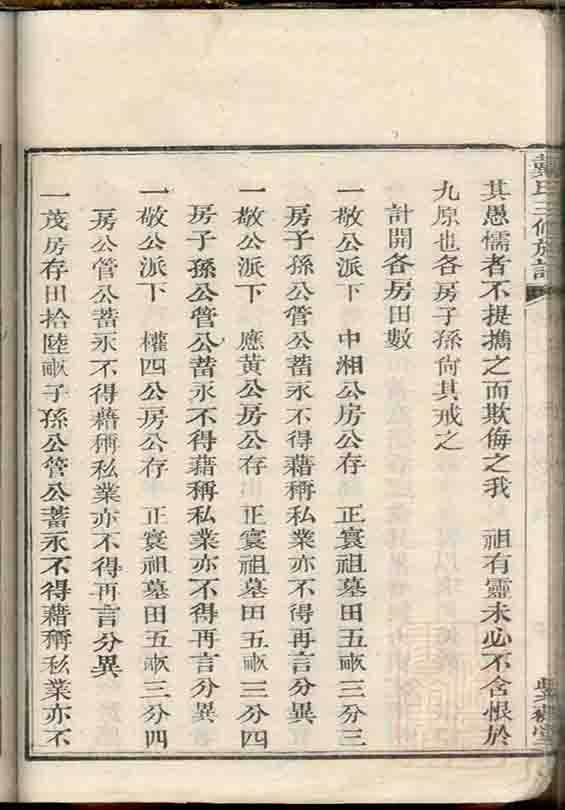 戴氏三修族譜
其愚懦者不提攜之而欺侮之我　祖有靈未必不含恨於
九原也各房子孫尚其戒之
計開各房田數
一敬公派下　中湘公房公存　正寰祖墓田五畝三分三
房子孫公管公蓄永不得藉稱私業亦不得再言分異
一敬公派下　應黃公房公存　正寰祖墓田五畝三分四
房子孫公管公蓄永不得藉稱私業亦不得再言分異
一敬公派下　權四公房公存　正寰祖墓田五畝三分四
房公管公蓄永不得藉稱私業亦不得再言分異
一茂房存田拾陸畝子孫公管公蓄永不得藉稱私業亦不